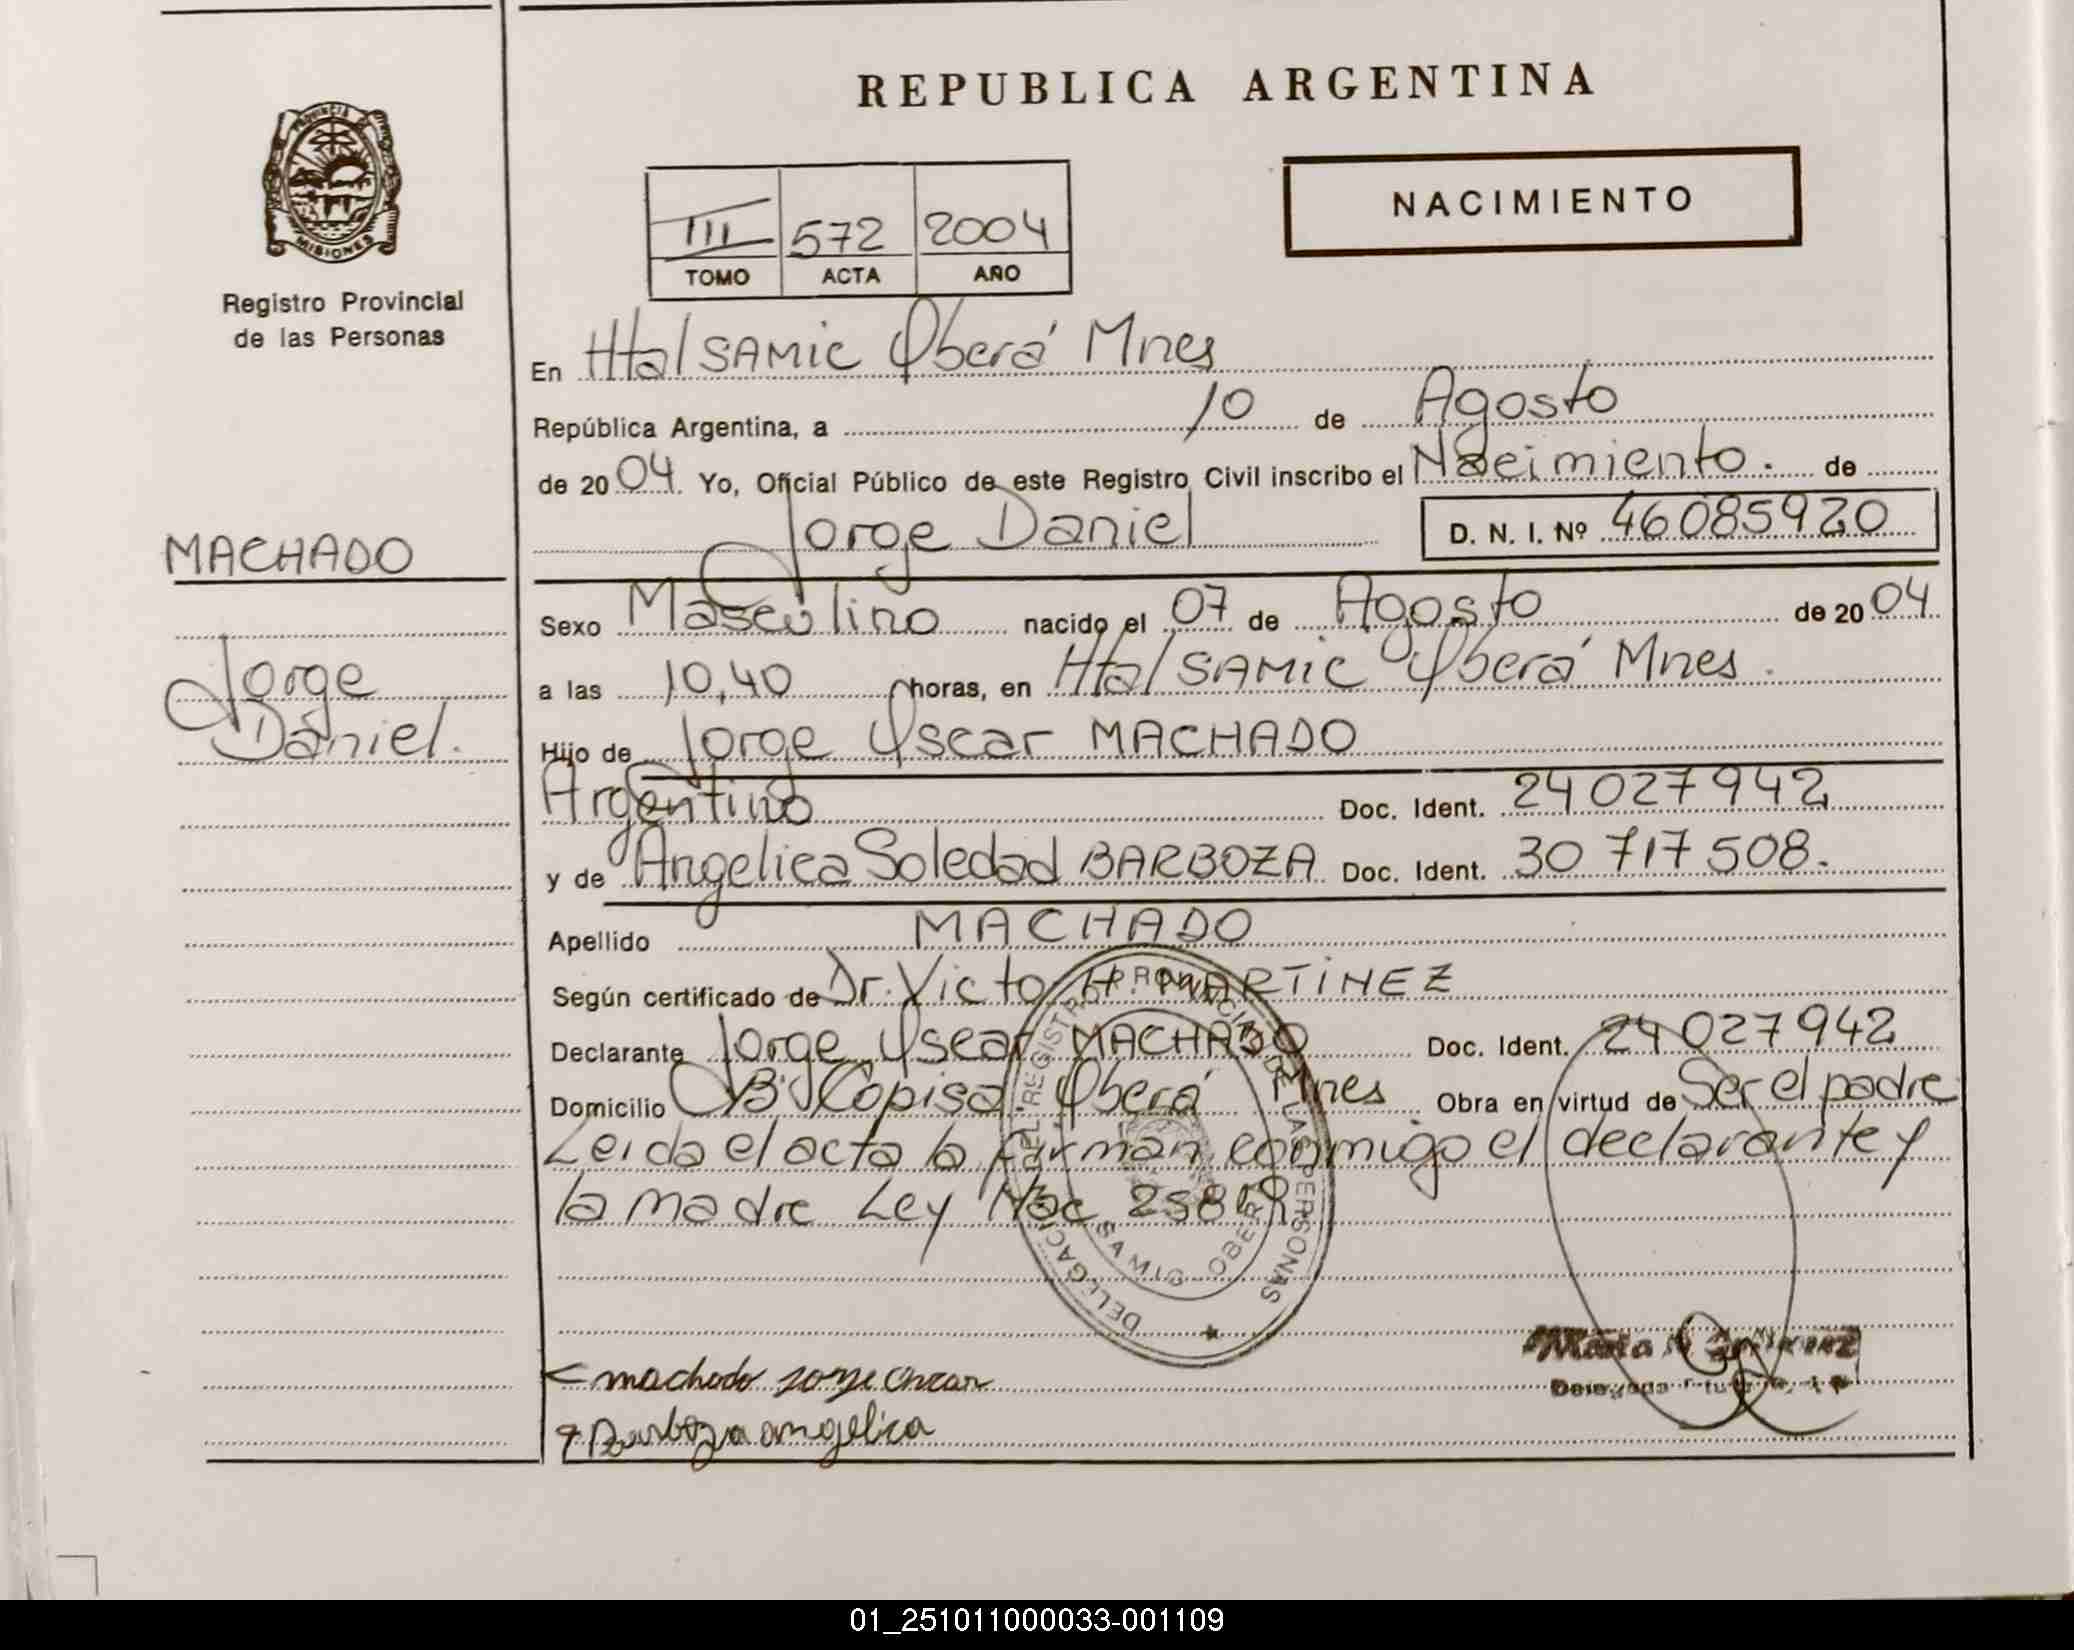 REPUBLICA ARGENTINA
PROVINCIA DE
MISIONES
Registro Provincial
de las Personas
III 572 2004
TOMO ACTA AÑO
NACIMIENTO
En Htal SAMIC Oberá Mnes
República Argentina, a 10 de Agosto
de 2004. Yo, Oficial Público de este Registro Civil inscribo el Nacimiento. de
Jorge Daniel D. N. I. Nº 46085920
MACHADO
Jorge
Daniel.
Sexo Masculino nacido el 07 de Agosto de 2004
a las 10,40 horas, en Htal SAMIC Oberá Mnes.
Hijo de Jorge Oscar MACHADO
Argentino Doc. Ident. 24027942
y de Angelica Soledad BARBOZA Doc. Ident. 30 717 508.
Apellido MACHADO
Según certificado de Dr. Victo H. MARTINEZ
Declarante Jorge Oscar MACHADO Doc. Ident. 24 027942
Domicilio Bº Copisa Oberá Mnes Obra en virtud de Ser el padre
Leida el acta la firman conmigo el declarante y
la madre Ley Nac
DELEGACION DEL REGISTRO PROVINCIAL DE LAS PERSONAS
SAMIC - OBERA
machado jorge
Barboza angelica
01_251011000033-001109